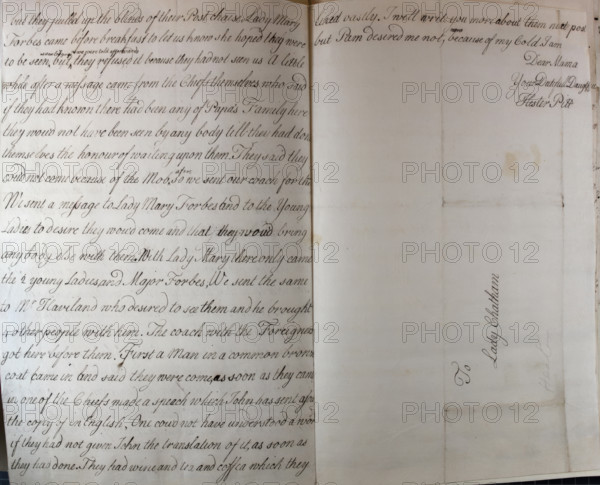 but they pulled up the blinds of their Post chaise, Lady Mary
Forbes came before breakfast to let us know she hoped they were
to be seen, but they refused it because they had not seen us A little
while after a message came from the Chiefs themselves who said
if they had known there had been any of Papa's Family here
they would not have been seen by any body till they had done
themselves the honour of waiting upon them. They said they
could not come because of the Mob, so we sent our coach for th
We sent a message to Lady Mary Forbes and to the Young
Ladies to desire they would come and that they would bring
any body else with them. With Lady Mary there only came
the 2 young Ladies and Major Forbes, We sent the same
to Mr Haviland who desired to see them and he brought
4 other people with him. The coach with the Foreigners
got here before them. First a Man in a common brown
coat came in and said they were come, as soon as they came
in one of the Chiefs made a speech which John has sent
the copy of in English, One could not have understood a word
if they had not given John the translation of it, as soon as
they had done They had wine and tea and coffea which they
liked vastly. I will write you more about them next post
but Pam desired me not, because of my Cold I am
Dear Mama
Your Dutiful Daughter
Hester Pitt
To
Lady Chatham
PHOTO 12